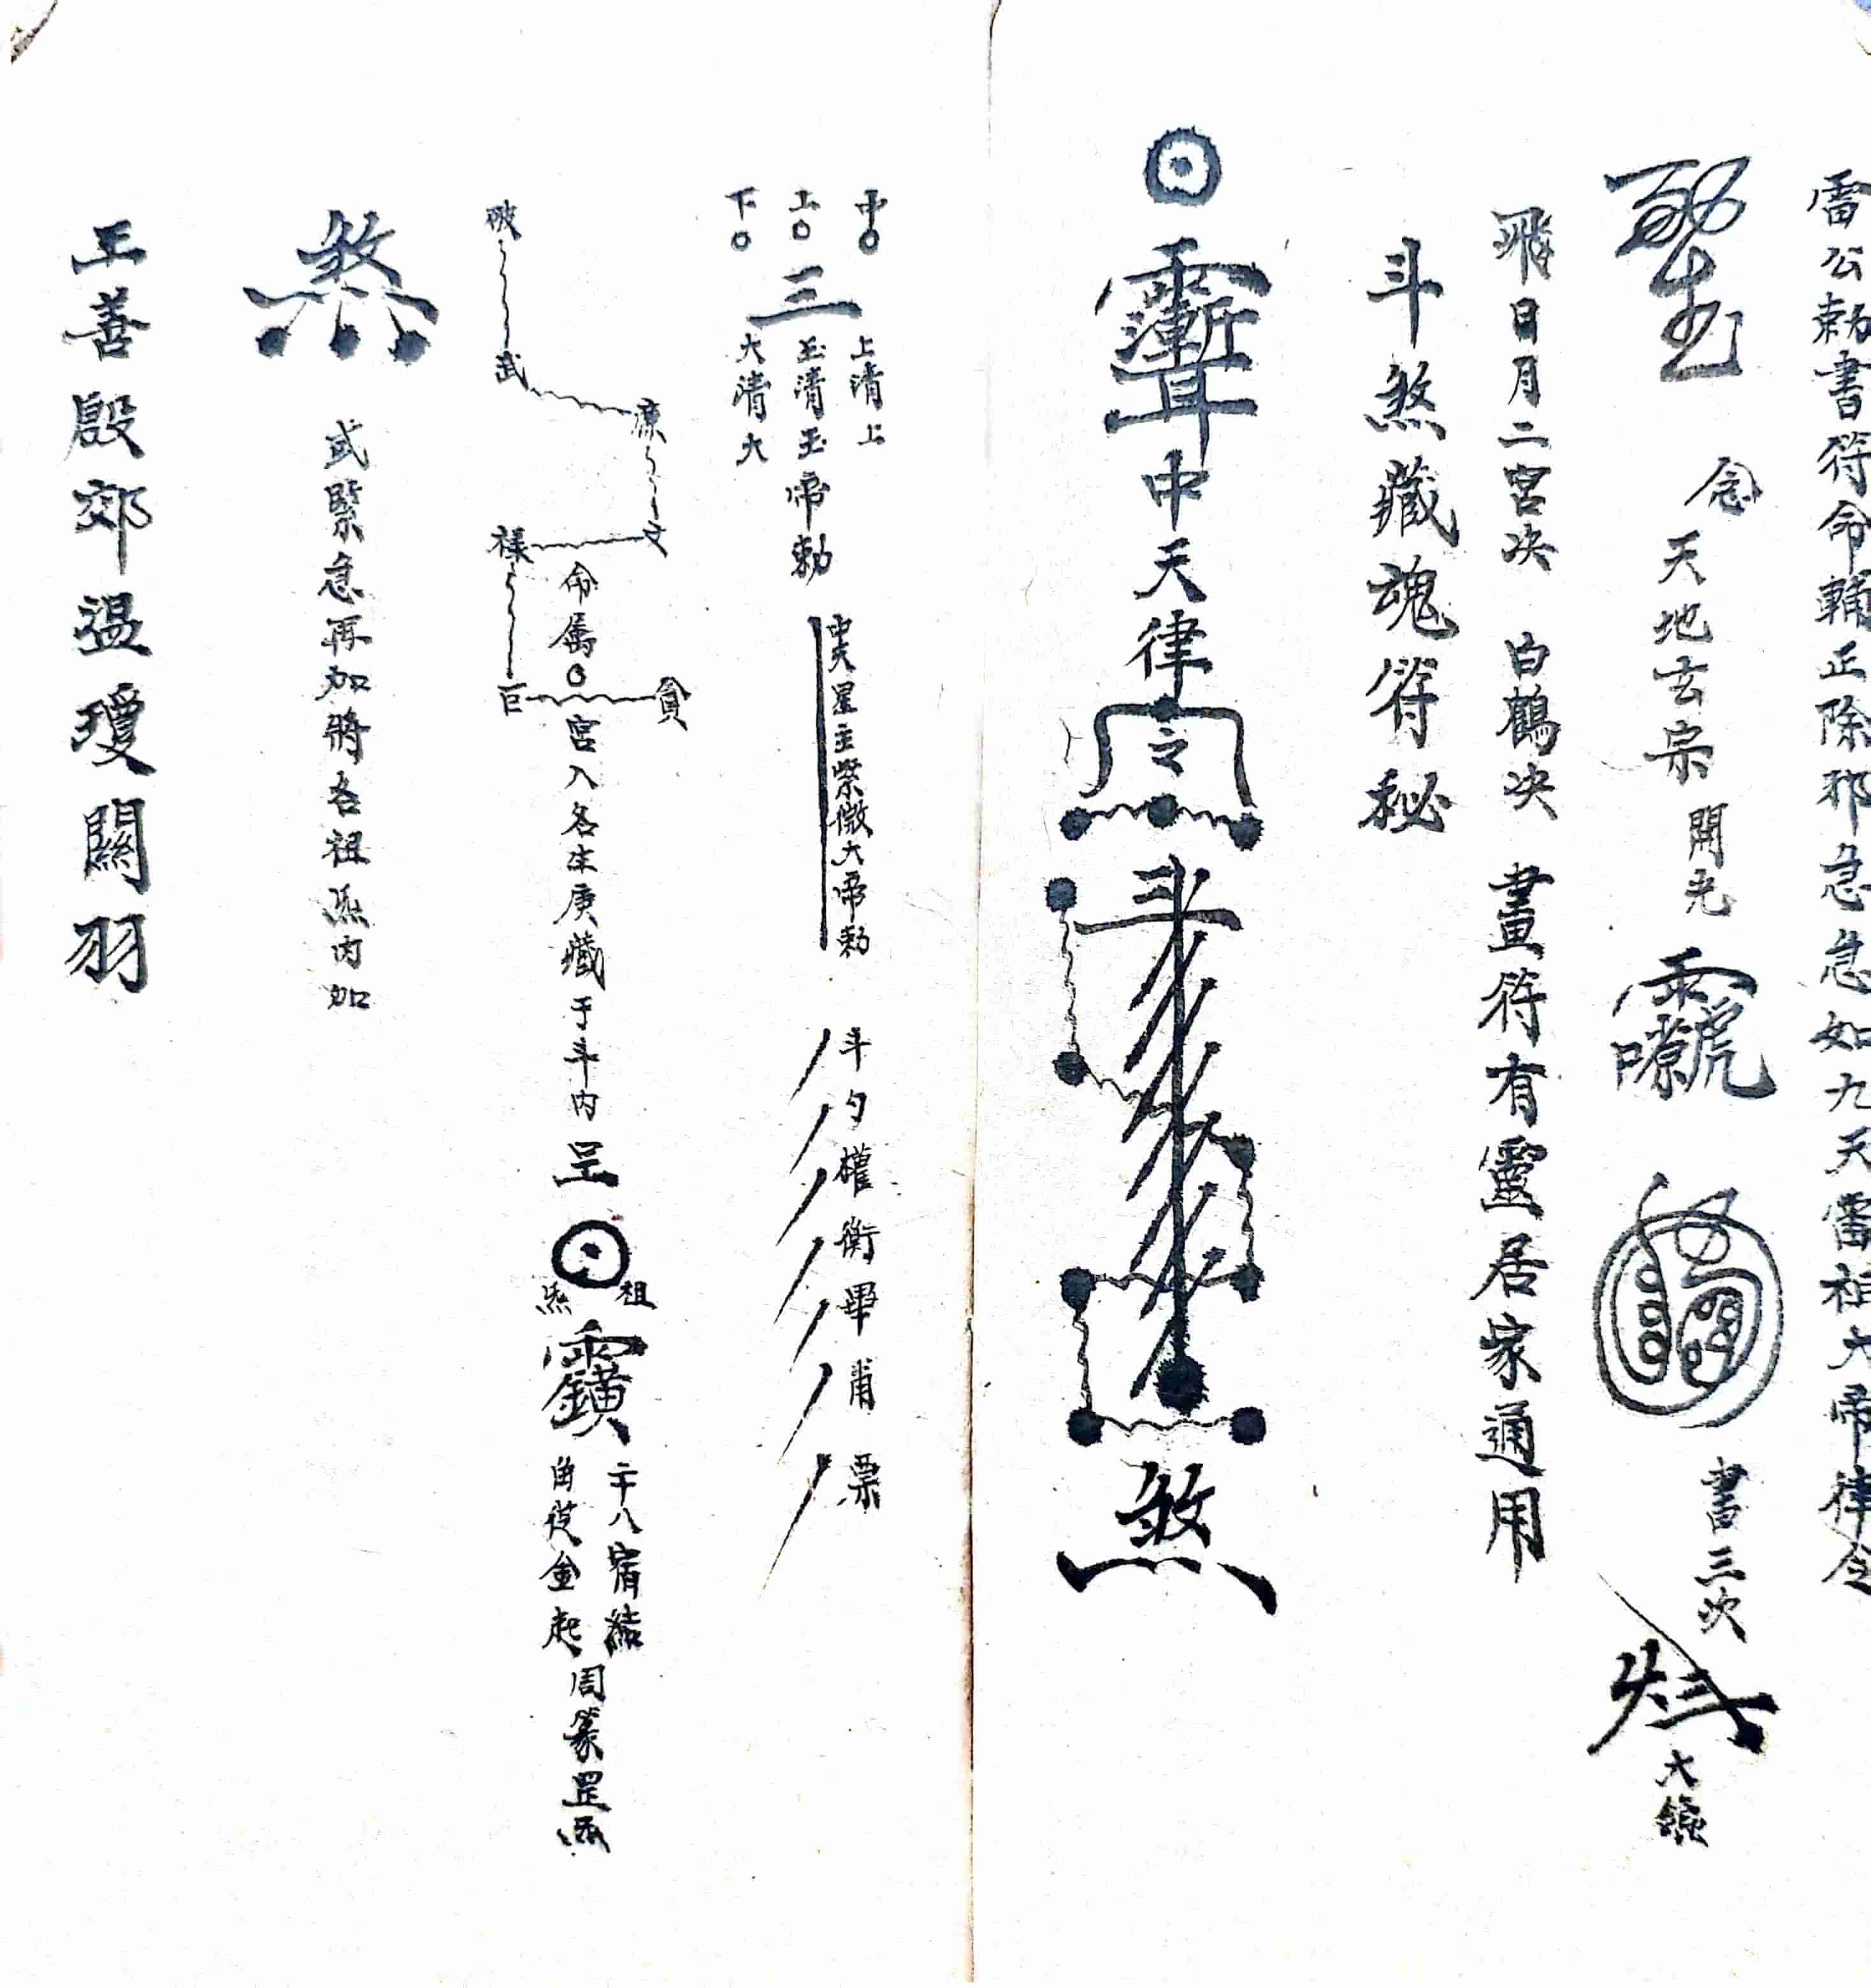 雷公勅書符命輔正除邪急急如九天雷祖大帝律令
念
天地玄宗
開光
書三次
大
飛日月二宮决 白鶴决 畫符有靈居家通用
斗煞藏魂符秘
中天律
令
斗
煞
中 上 下
三
上清上
玉清玉帝勅
大清大
中天星主紫微大帝勅
斗勺權衡畢甫票
破 武 廉 文 祿 巨 貪
命属
宮入各本庚藏于斗内
罡
祖
炁
二十八宿結
角從金起
周篆罡炁
煞
或緊急再加將各祖炁内加
王善殷郊溫瓊關羽